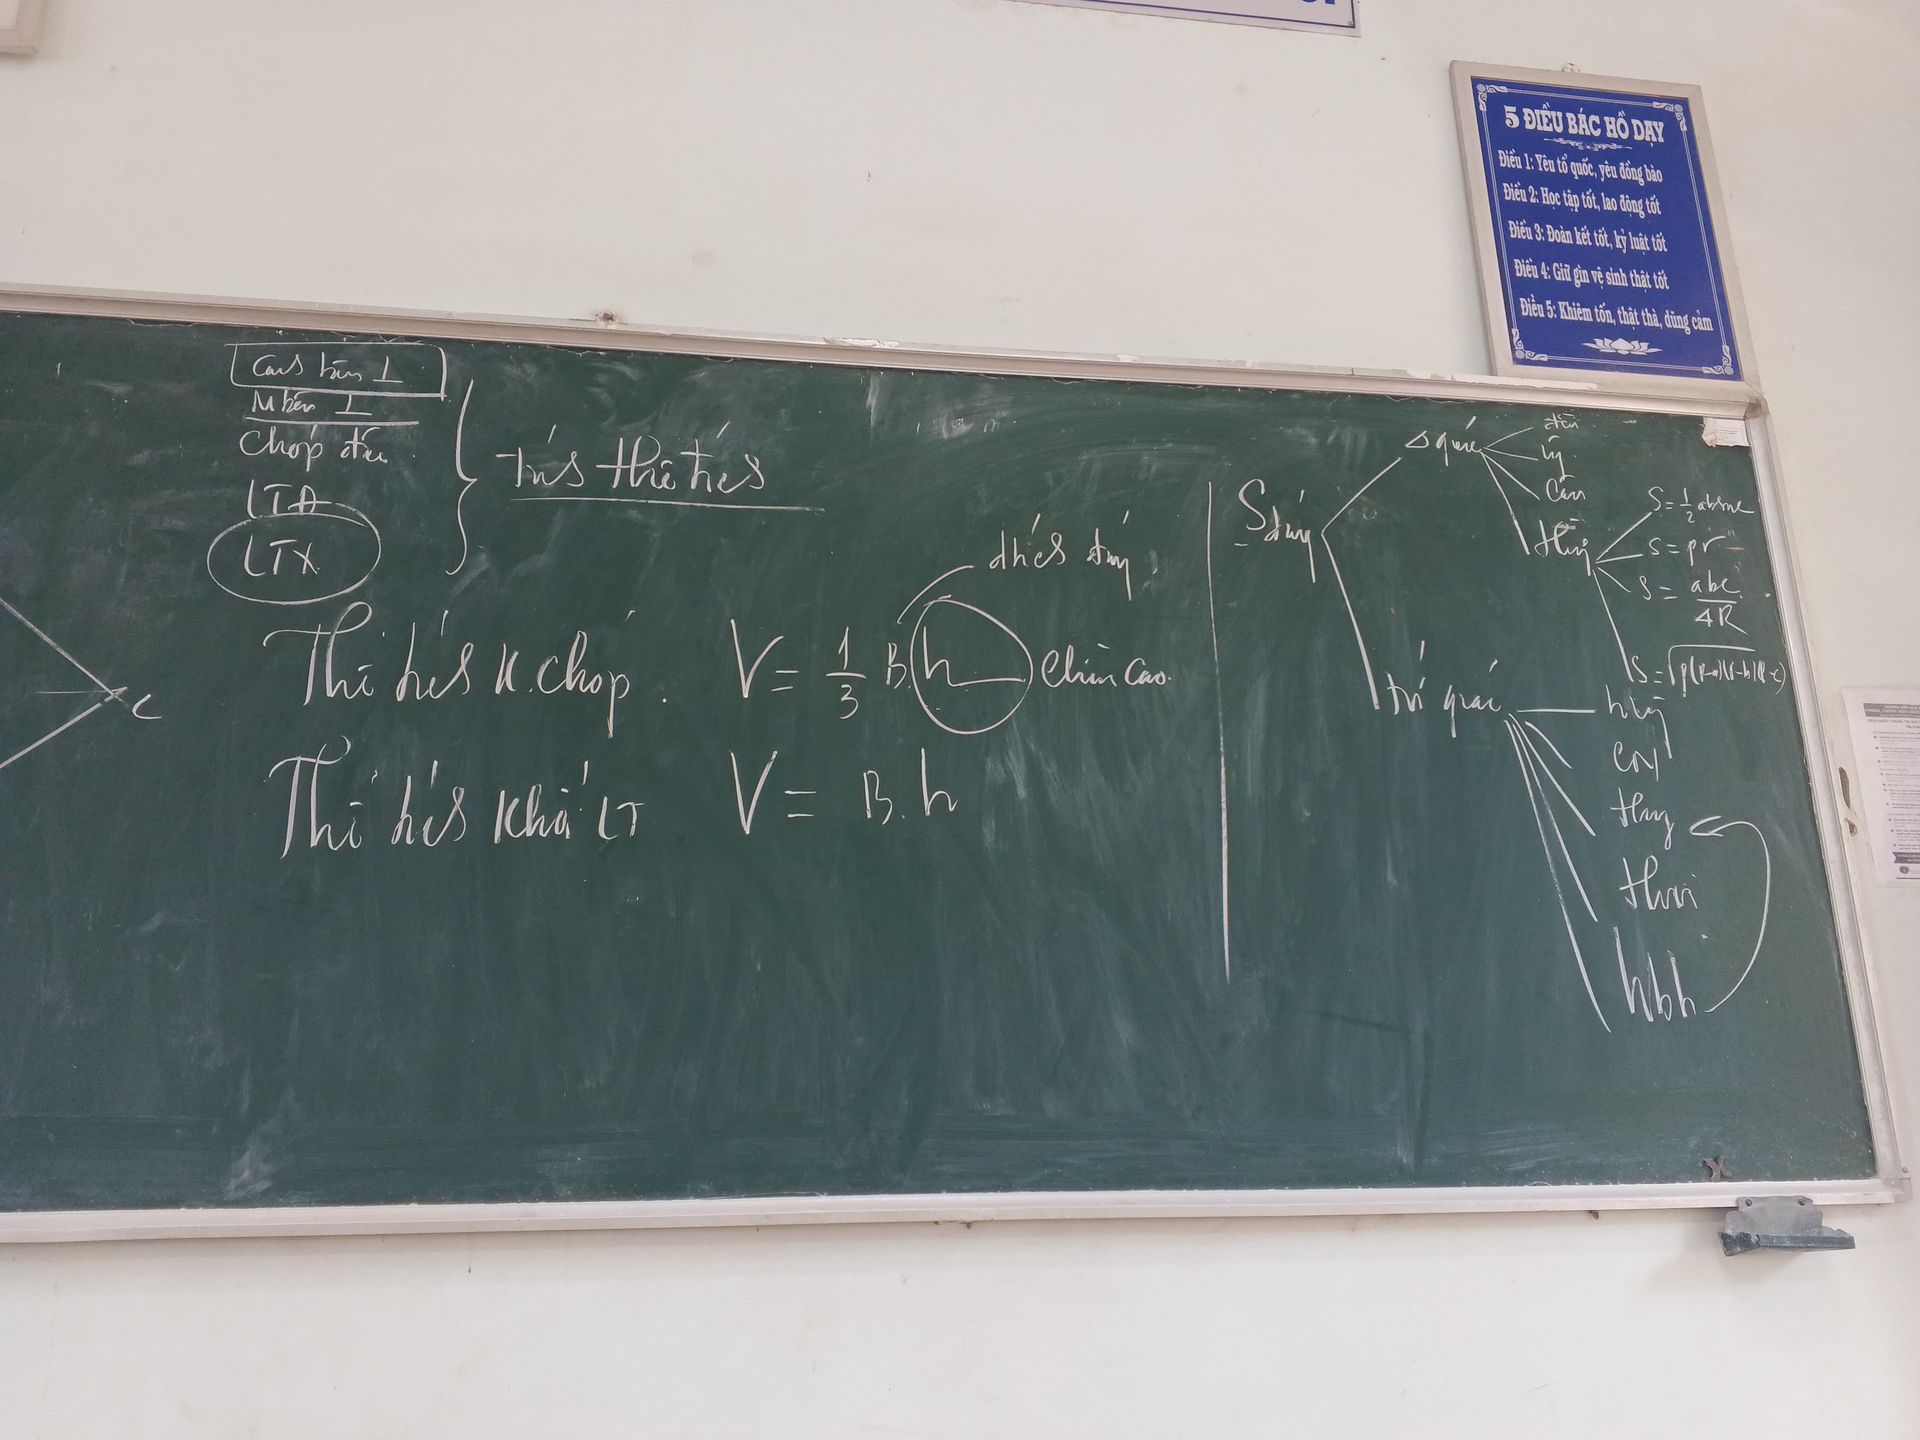 5 ĐIỀU BÁC HỒ DẠY
Điều 1: Yêu tổ quốc, yêu đồng bào
Điều 2: Học tập tốt, lao động tốt
Điều 3: Đoàn kết tốt, kỷ luật tốt
Điều 4: Giữ gìn vệ sinh thật tốt
Điều 5: Khiêm tốn, thật thà, dũng cảm
bên ⊥
M bên ⊥
Chóp đều
LTĐ
LTX
Thể tích K. chóp. V = 1/3 B.h
Chiều cao.
Thể tích Khối LT V = B.h
C
S đáy
Δ giác
đều
cân
thường
S = 1/2 absinc
S = pr
S = abc/4R
S = √p(p-a)(p-b)(p-c)
tứ giác
thang
thoi
hbh